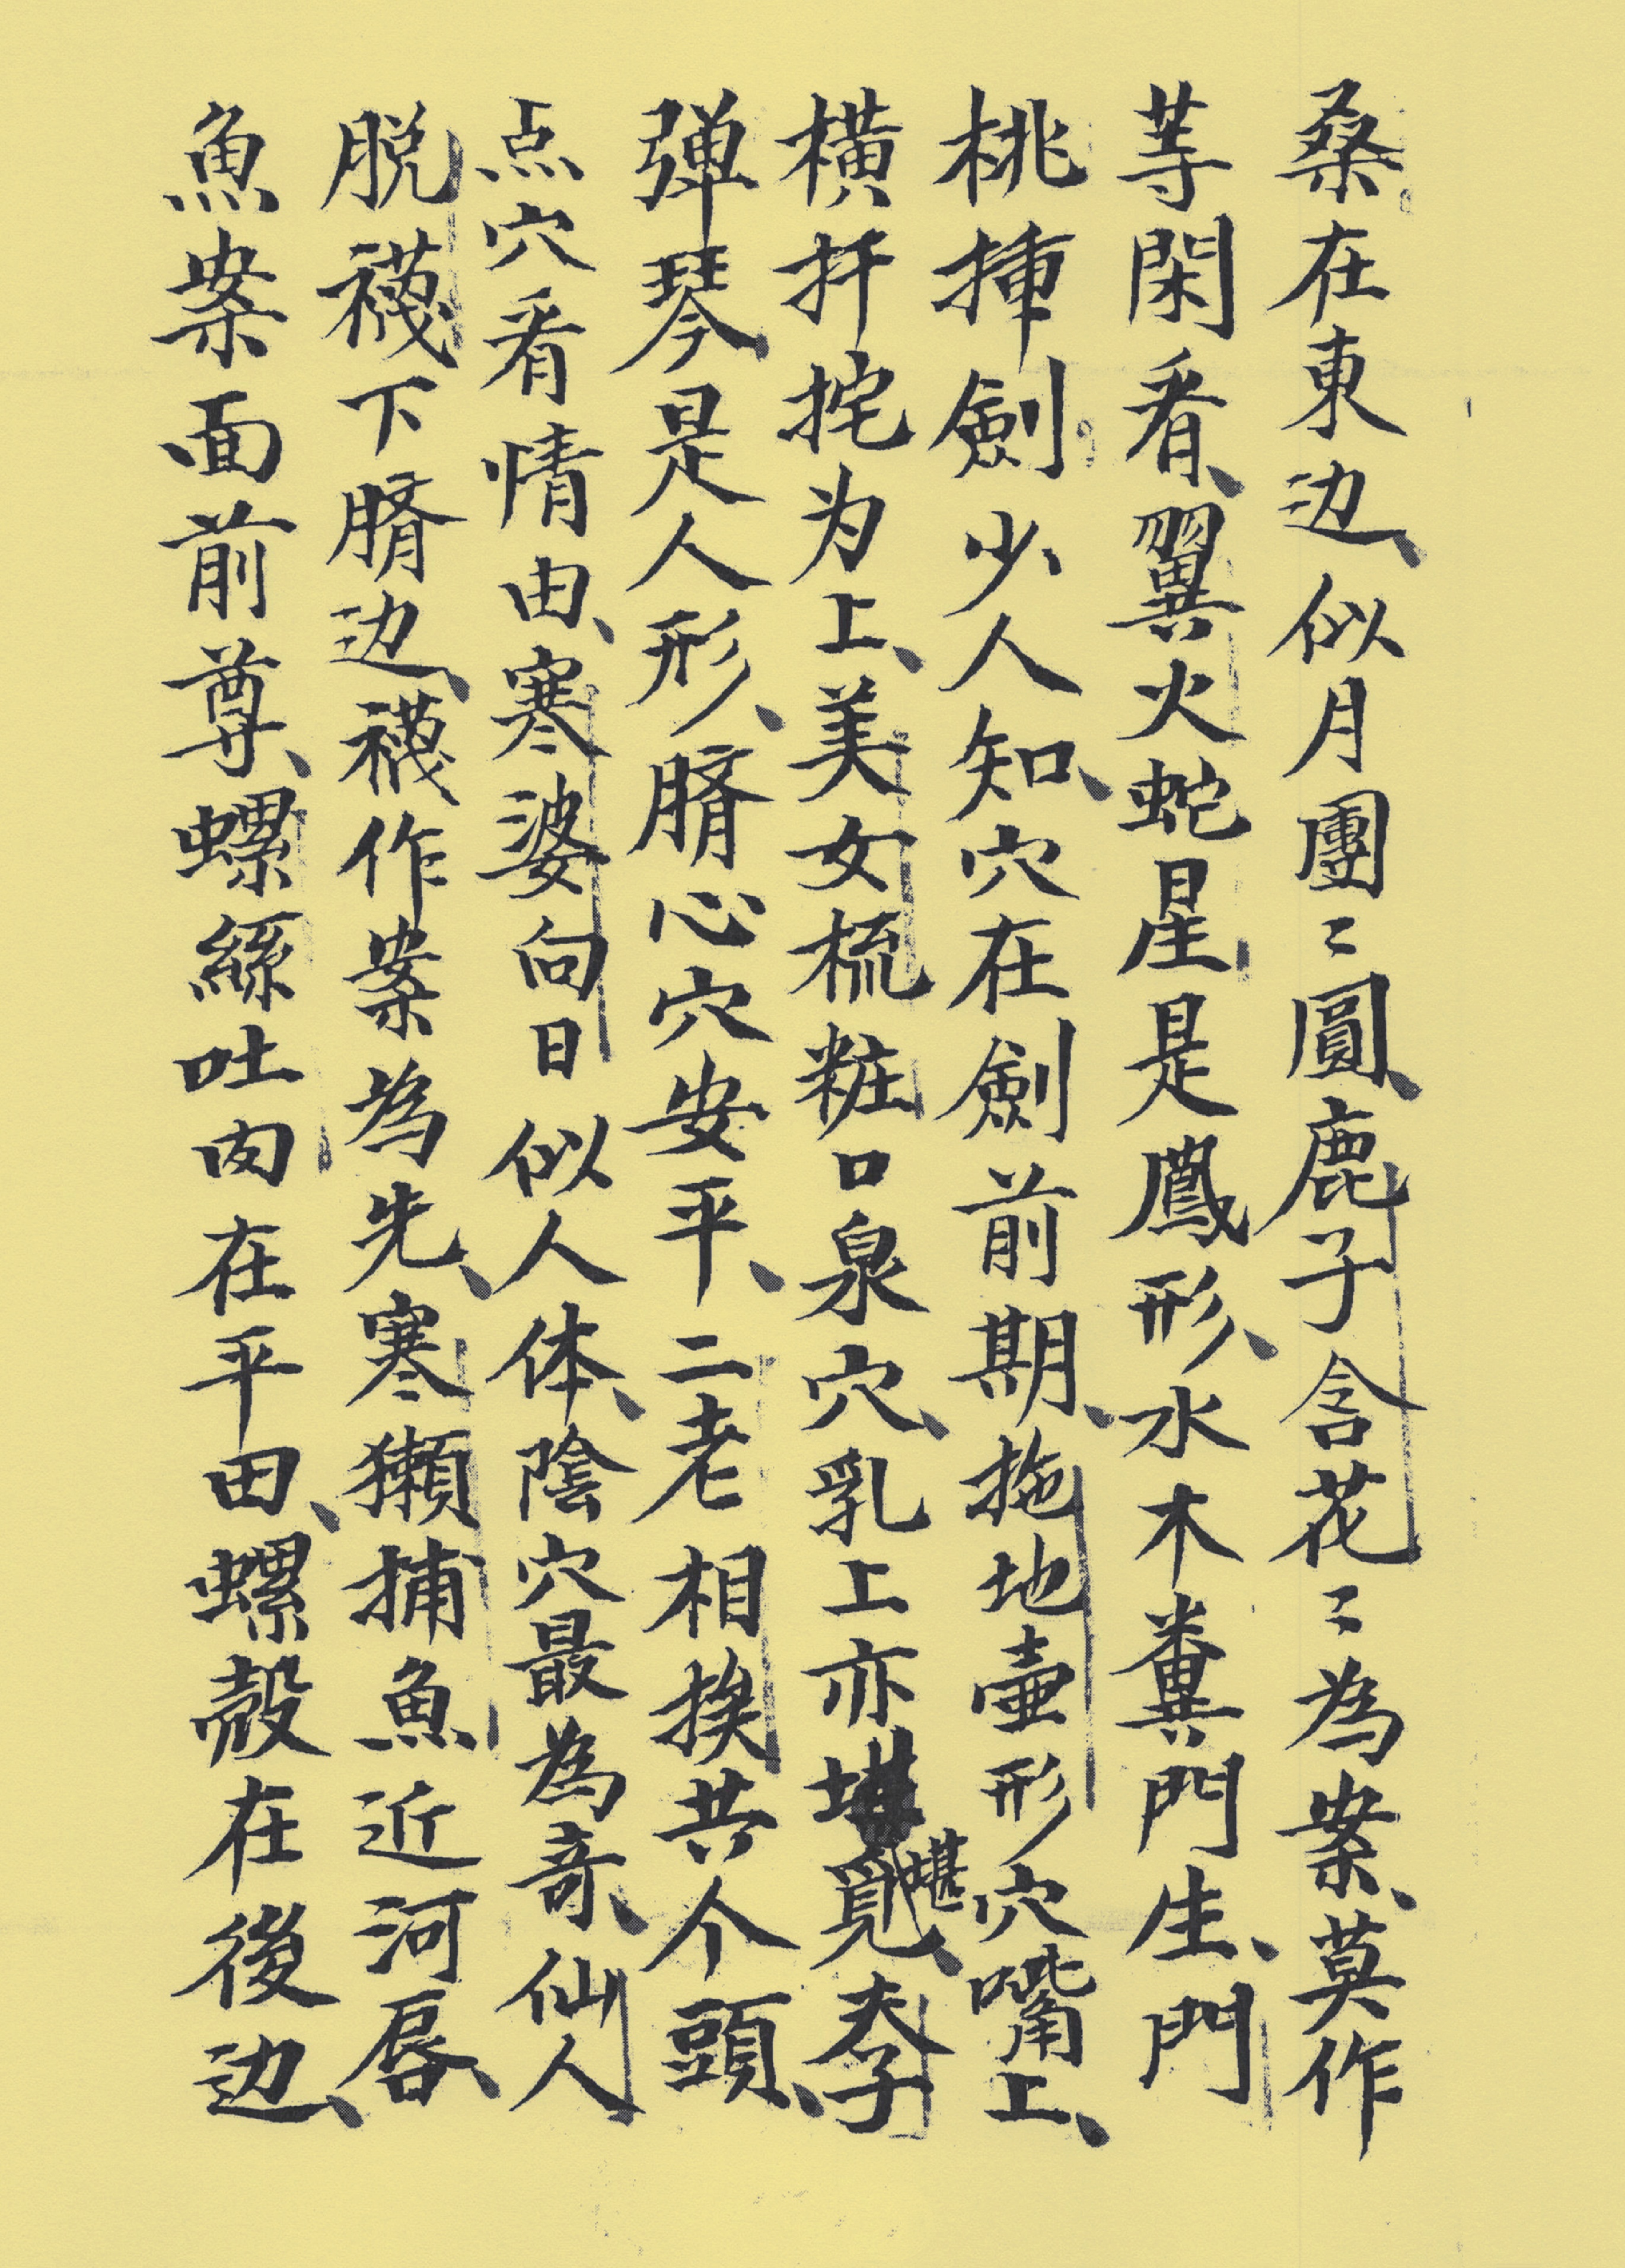 桑在東边、似月團〻圓、鹿子含花〻為案、莫作
等閑看、翼火蛇星是鳳形、水木糞門生、門
桃揷劍少人知、穴在劍前期、拖地壷形穴嘴上、
橫扦挓为上、美女梳粧口泉穴、乳上亦堪覓、夲子
弹琴是人形、臍心穴安平、二老相挨共个頭、
点穴看情由、寒婆向日似人体、陰穴最為奇、仙人
脱襪下臍边、襪作案為先、寒獺捕魚近河唇、
魚案面前尊、螺絲吐肉在平田、螺殻在後边、